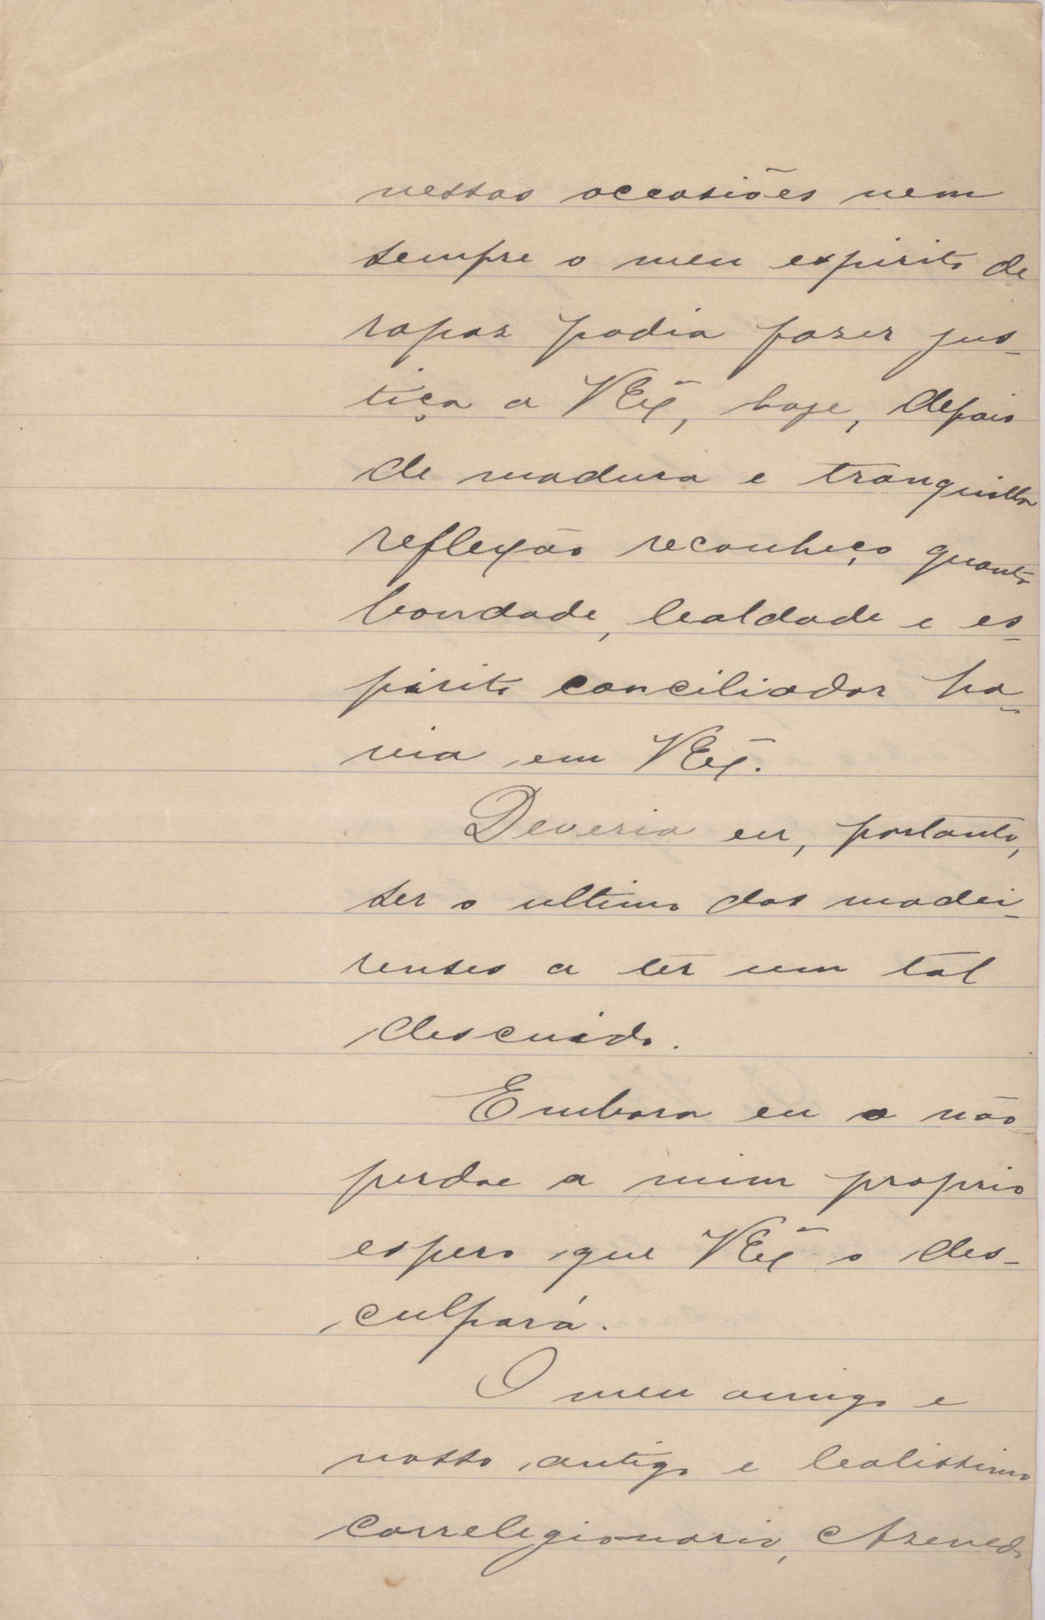 nessas occasiões nem
sempre o meu espirito de
rapaz podia fazer jus-
tiça a VExª, hoje, depois
de madura e tranquilla
reflexão reconheço quanta
bondade, lealdade e es-
pirito conciliador ha-
via em VExª.
Deveria eu, portanto,
ser o ultimo dos madei-
renses a ter um tal
descuido.
Embora eu o não
perdoe a mim proprio
espero que VExª o des-
culpará.
O meu amigo e
nosso antigo e lealissimo
correlegionario, Azevedo